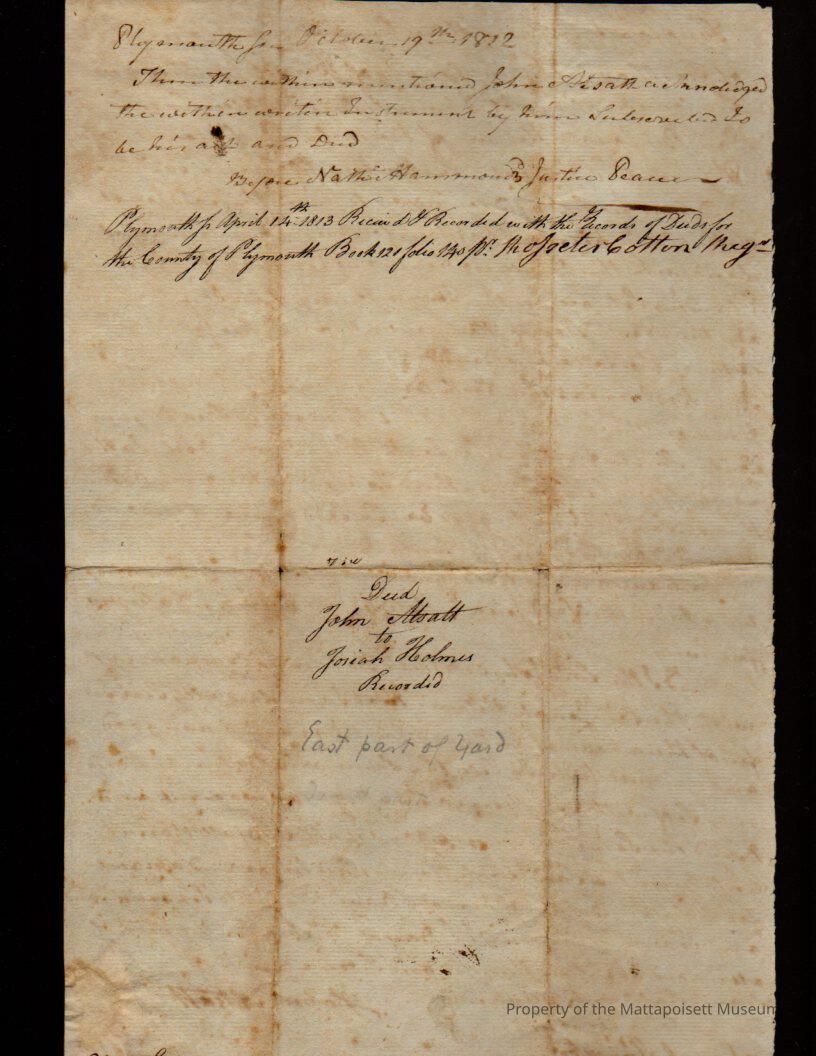 Plymouth ss October 19th 1812
Then the within mentioned John Atsatt acknoledged
the within writen Instrument by him Subscribed to
be his act and Deed
Before Nathl Hammond Justice Peace
Plymouth ss April 14th 1813 Received & Recorded with the Records of Deeds for
the County of Plymouth Book 120 folio 140 pr. Rosseter Cotton Regr
Deed
John Atsatt
to
Josiah Holmes
Recorded
East part of Yard
Property of the Mattapoisett Museum